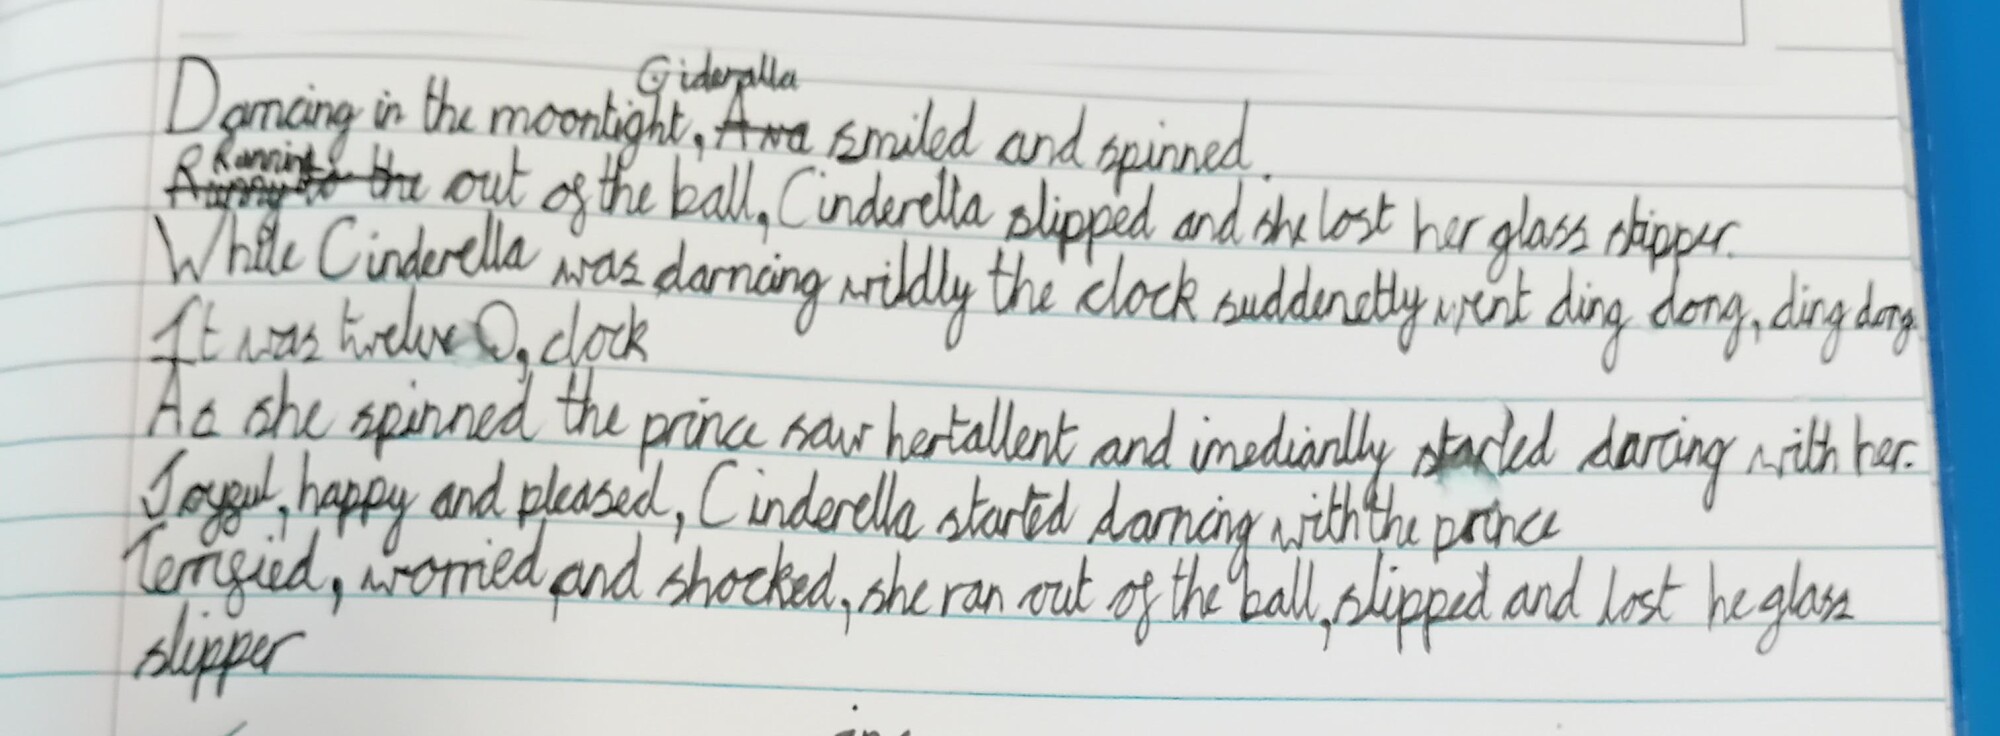 Gideralla
Darncing in the moontight, Ana smiled and spinned.
Running
to the out of the ball, Cinderella slipped and she lost her glass slipper.
While Cinderella was darncing wildly the clock suddenetly went ding dong, ding dong.
It was twelve O, clock
As she spinned the prince saw her tallent and imedianlly started darcing with her.
Joyful, happy and pleased, Cinderella started darncing with the prince
Terrified, worried and shocked, she ran out of the ball, slipped and lost he glass
slipper